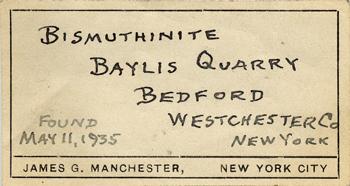 BISMUTHINITE
BAYLIS QUARRY
BEDFORD
FOUND WESTCHESTER Co
MAY 11, 1935 NEW YORK
JAMES G. MANCHESTER, NEW YORK CITY